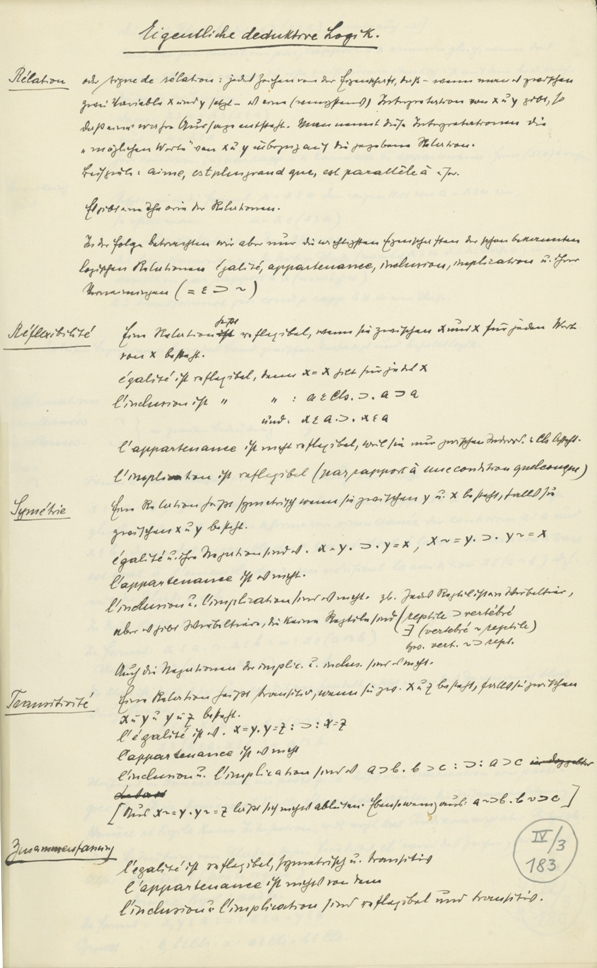 Eigentliche deduktive Logik.
Rélation oder signe de rélation: jedes Zeichen von der Eigenschaft, daß – wenn man es zwischen
zwei Variable x und y setzt – es eine (wenigstens) Interpretation von x u y gibt, so
daß eine wahre Aussage entsteht. Man nennt diese Interpretationen die
"möglichen Werte" von x u y in bezug auf die gegebene Relation.
Beispiele: aime, est plus grand que, est parallèle à usw.
Es gibt eine Theorie der Relationen.
In der Folge betrachten wir aber nur die wichtigsten Eigenschaften der schon bekannten
logischen Relationen (égalité, appartenance, inclusion, implication u. ihrer
Verneinungen (= ε ⊃ ~)
Réflexibilité Eine Relation heißt reflexibel, wenn sie zwischen x und x für jeden Wert
von x besteht.
égalité ist reflexibel, denn x = x gilt für jedes x
l'inclusion ist " " : a ε Cls. ⊃. a ⊃ a
und. x ε a. ⊃. x ε a
l'appartenance ist nicht reflexibel, weil sie nur zwischen Individ. u Cls besteht.
l'implication ist reflexibel (par rapport à une condition quelconque)
Symétrie Eine Relation heißt symmetrisch wenn sie zwischen y u. x besteht, falls sie
zwischen x u y besteht.
égalité u. ihre Negation sind es. x = y. ⊃. y = x, x ~= y. ⊃. y ~= x
l'appartenance ist es nicht.
l'inclusion u. l'implication sind es nicht. zb. Jedes Reptil ist ein Wirbeltier,
aber es gibt Wirbeltiere, die keine Reptile sind (reptile ⊃ vertébré
∃ (vertébré ~ reptile)
vert. ~⊃ rept.
Auch die Negationen der implic. u. inclus. sind es nicht.
Transitivité Eine Relation heißt transitiv, wenn sie zw. x u z besteht, falls sie zwischen
x u y u y u z besteht.
l'égalité ist es. x = y. y = z : ⊃ : x = z
l'appartenance ist es nicht
l'inclusion u. l'implication sind es a ⊃ b. b ⊃ c : ⊃ : a ⊃ c
[Aus x ~= y. y ~= z läßt sich nichts ableiten. Ebensowenig aus. a ~⊃ b. b ~⊃ c]
Zusammenfassung
l'égalité ist reflexibel, symmetrisch u. transitiv
l'appartenance ist nichts von dem
l'inclusion u l'implication sind reflexibel und transitiv.
IV/3
183